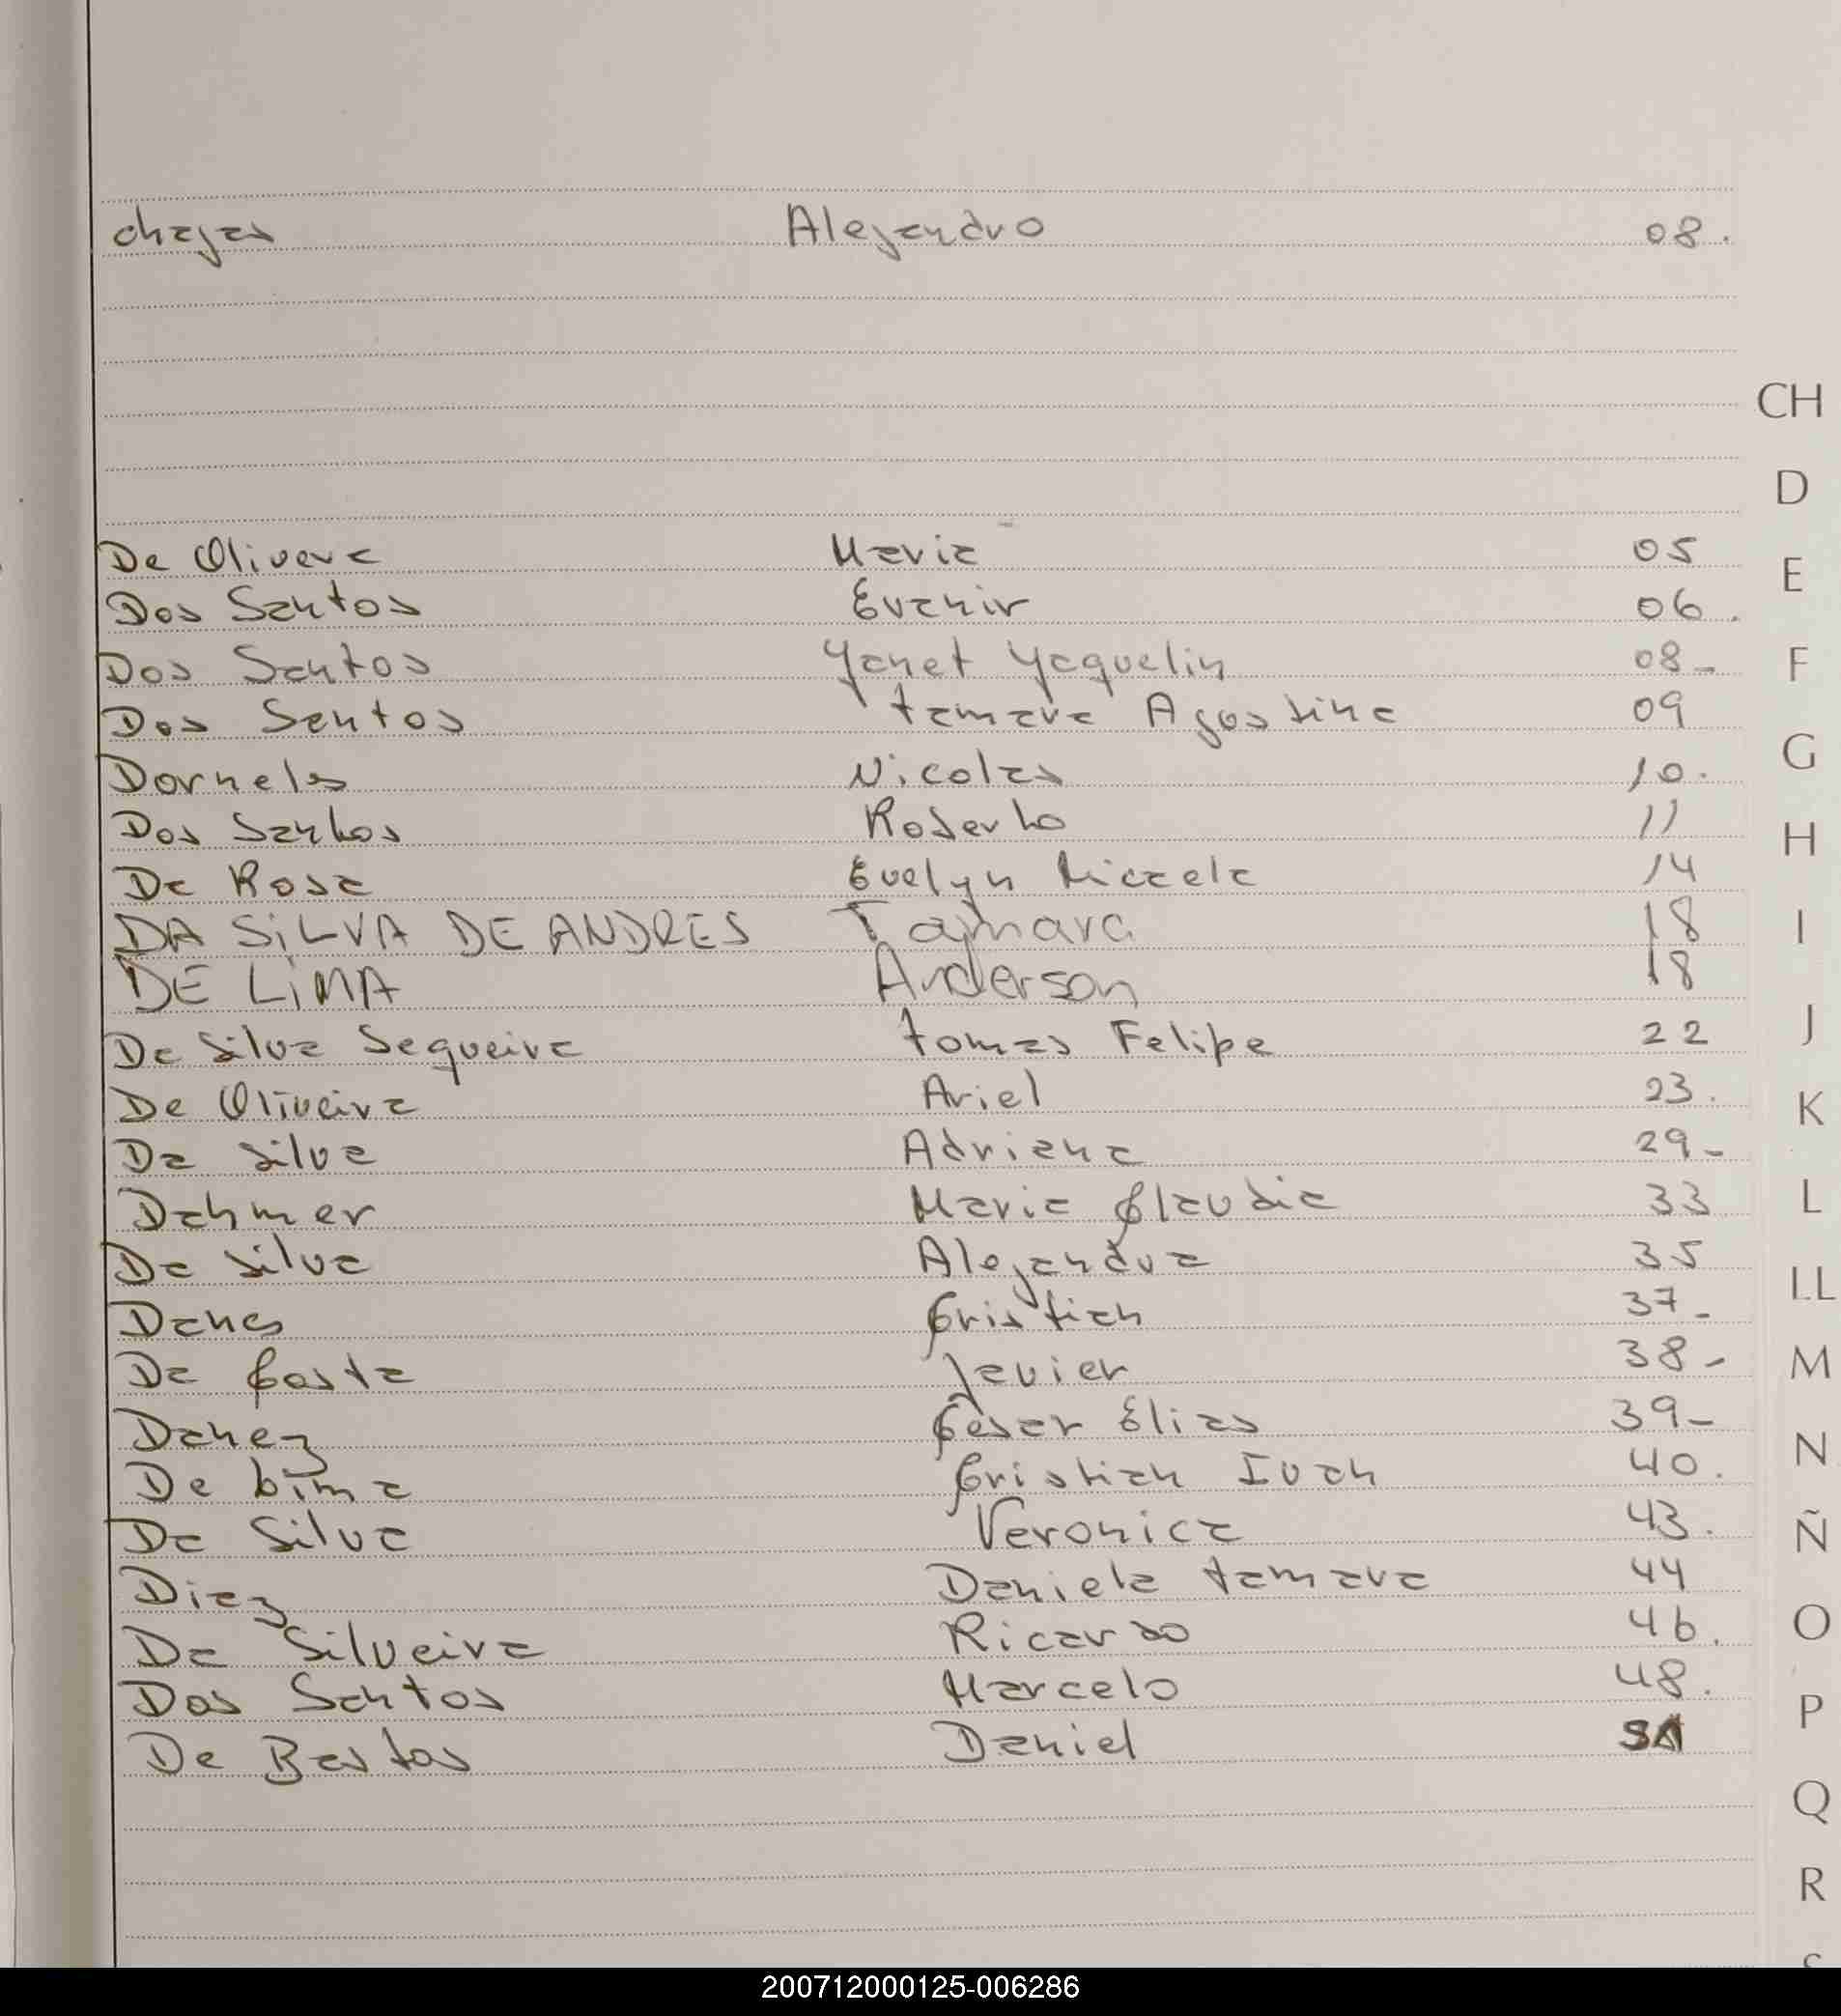 chagas Alejandro 08.
CH
D
De Olivera Maria 05
E
Dos Santos Evanir 06.
Dos Santos Yanet Yaquelin 08-
F
Dos Santos tamara Agostina 09
G
Dornels Nicolas 10.
Dos Santos Roberto 11
H
Da Rosa Evelyn Micaela 14
DA SiLVA DE ANDRES Taymara 18
I
DE LiMA Anderson 18
Da Silva Sequeira tomas Felipe 22
J
De Oliveira Ariel 23.
K
Da Silva Adriana 29-
Dahmer Maria Claudia 33
L
Da Silva Alejandra 35
LL
Danes Cristian 37-
Da Costa Javier 38-
M
Danez Cesar Elias 39-
N
De Lima Cristian Ivan 40.
Da Silva Veronica 43.
Ñ
Diaz Daniela tamara 44
O
Da Silveira Ricardo 46.
Dos Santos Marcelo 48.
P
De Bastos Daniel
Q
R
200712000125-006286